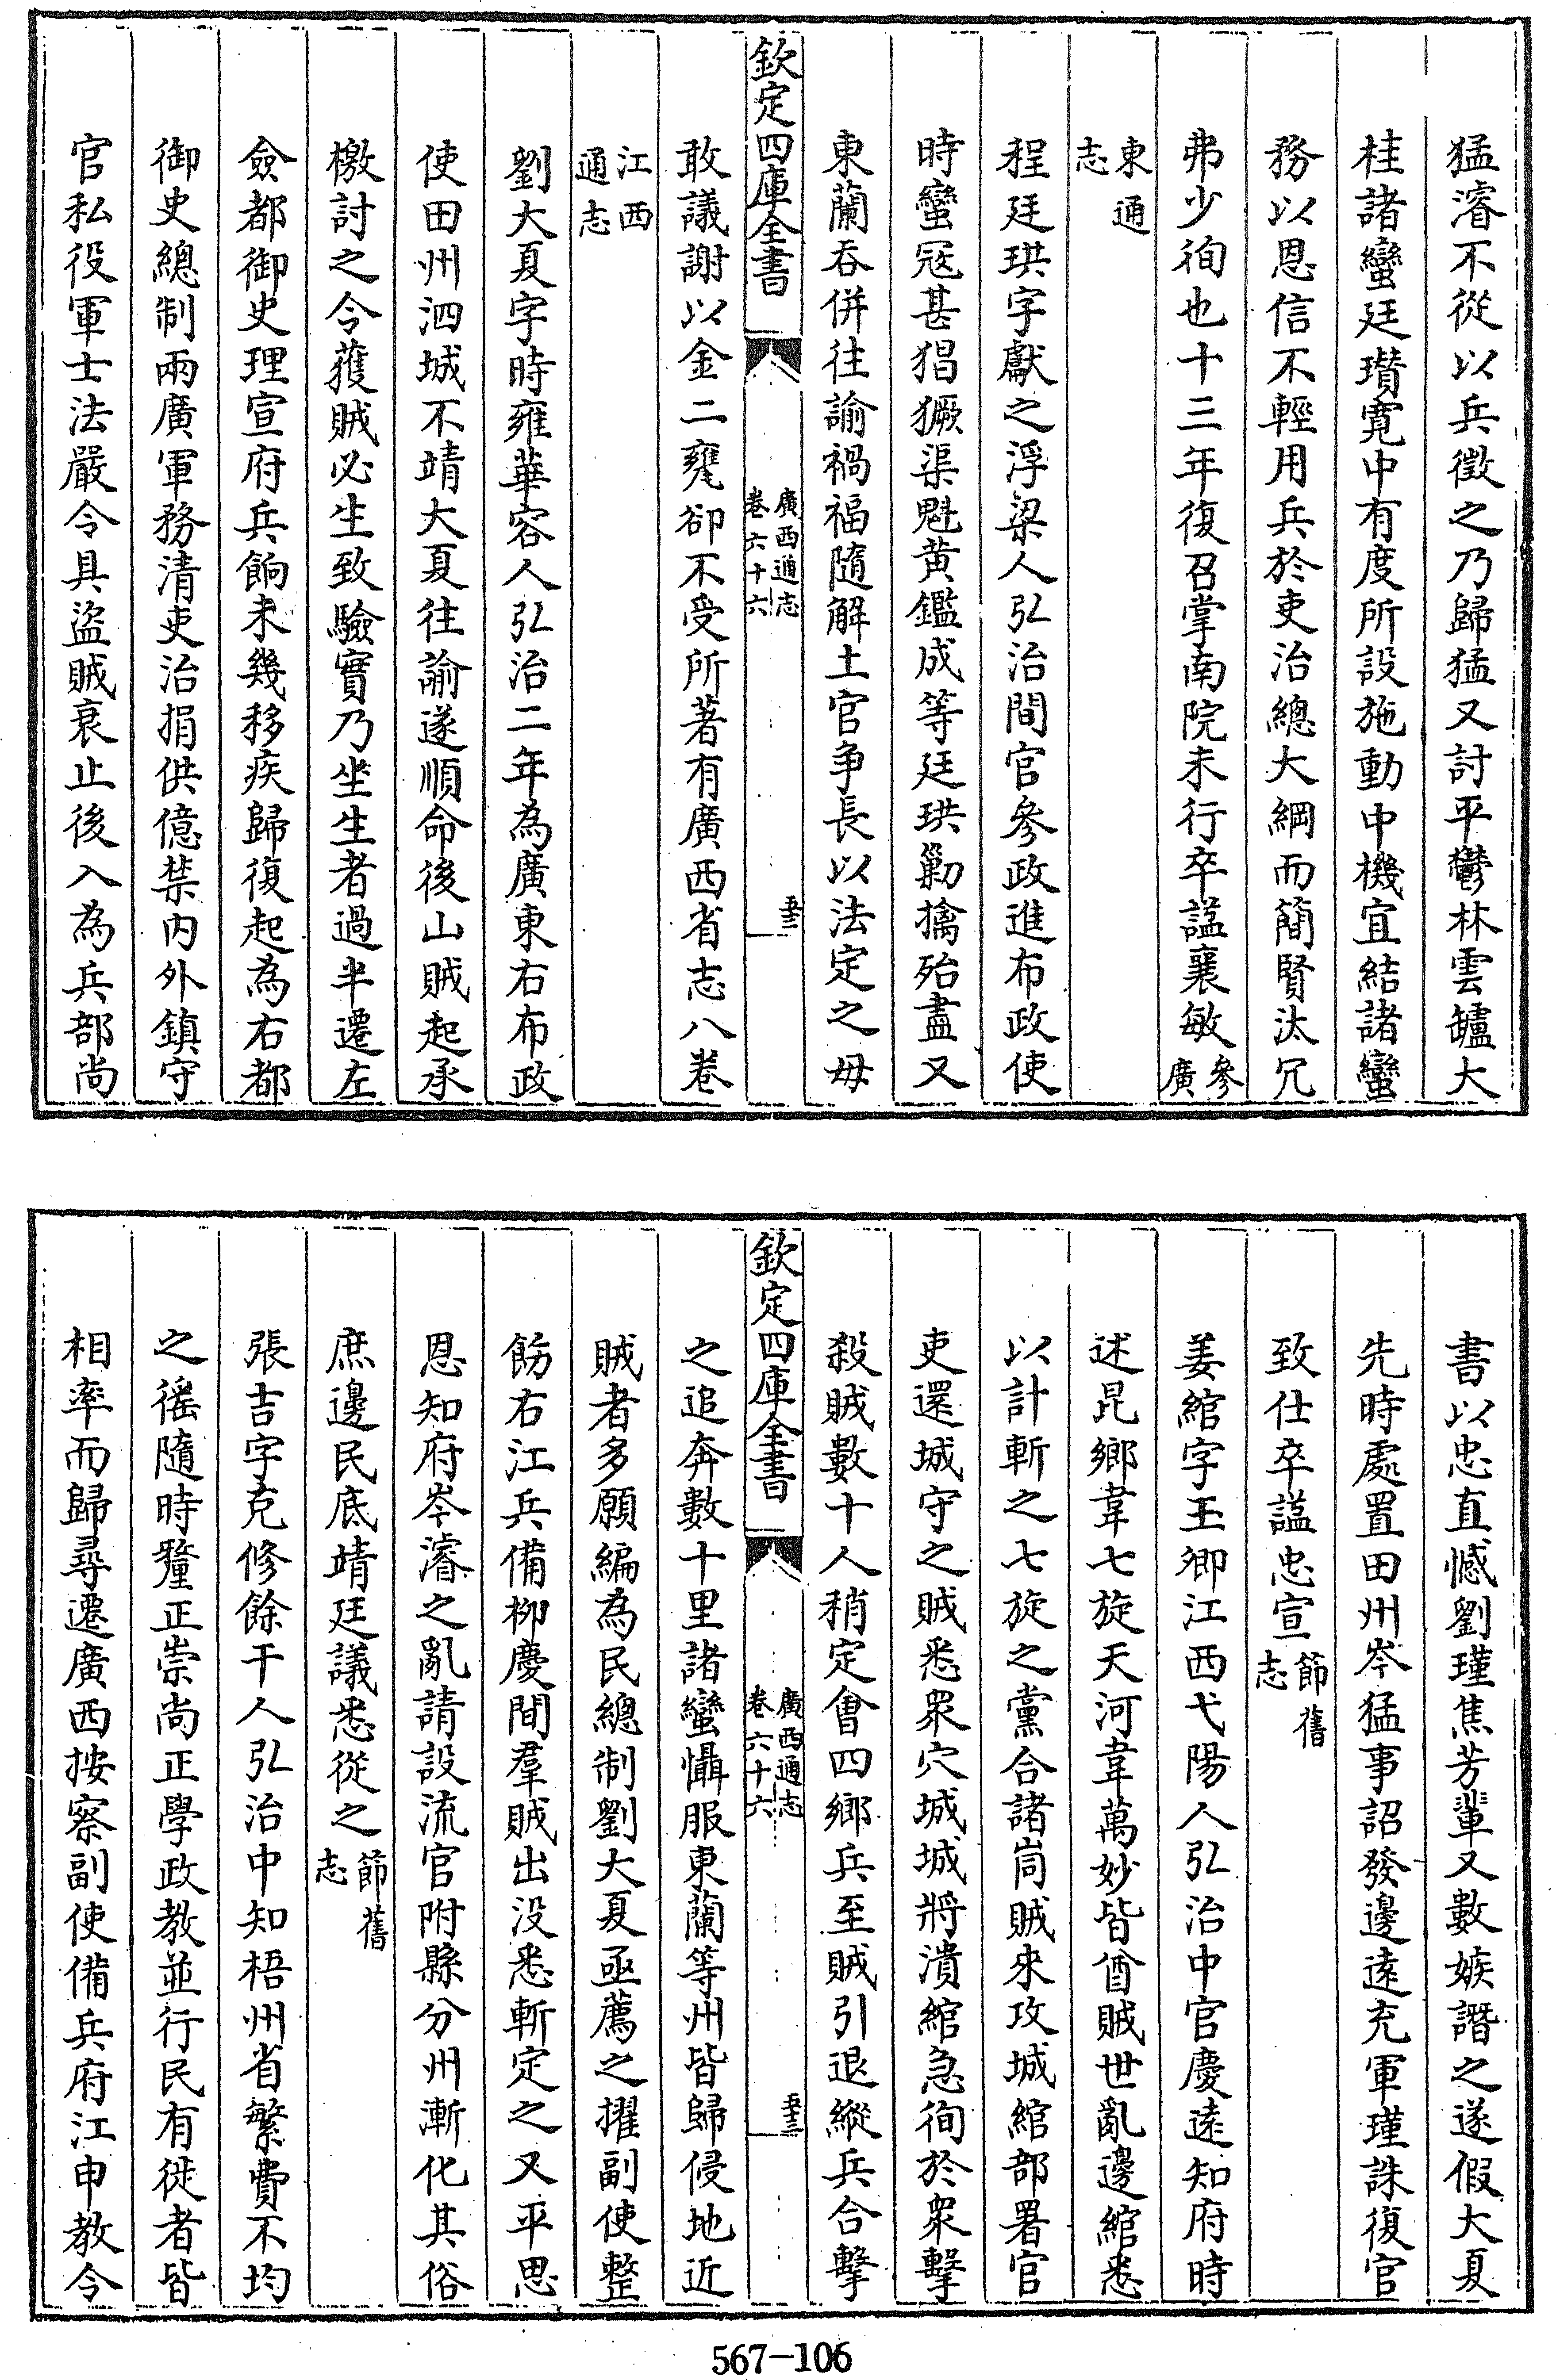 猛濬不從以兵徵之乃歸猛又討平鬱林雲罏大
桂諸蠻廷瓚寛中有度所設施動中機宜結諸蠻
務以恩信不輕用兵於吏治總大綱而簡賢汰冗
弗少徇也十三年復召掌南院未行卒諡襄敏參廣
東通志
程廷珙字獻之浮梁人弘治間官參政進布政使
時蠻冦甚猖獗渠魁黄鑑成等廷珙勦擒殆盡又
東蘭吞併往諭禍福隨解土官争長以法定之毋
敢議謝以金二甕卻不受所著有廣西省志八卷
江西通志
劉大夏字時雍華容人弘治二年為廣東右布政
使田州泗城不靖大夏往諭遂順命後山賊起承
檄討之令獲賊必生致驗實乃坐生者過半遷左
僉都御史理宣府兵餉未幾移疾歸復起為右都
御史總制兩廣軍務清吏治捐供億禁内外鎮守
官私役軍士法嚴令具盜賊衰止後入為兵部尚
欽定四庫全書
廣西通志
卷六十六
五十三
書以忠直憾劉瑾焦芳輩又數嫉譖之遂假大夏
先時處置田州岑猛事詔發邊遠充軍瑾誅復官
致仕卒諡忠宣節舊志
姜綰字玉卿江西弋陽人弘治中官慶遠知府時
述昆鄉韋七旋天河韋萬妙皆酋賊世亂邊綰悉
以計斬之七旋之黨合諸峝賊來攻城綰部署官
吏還城守之賊悉衆穴城城將潰綰急徇於衆擊
殺賊數十人稍定會四鄉兵至賊引退縱兵合擊
之追奔數十里諸蠻懾服東蘭等州皆歸侵地近
賊者多願編為民總制劉大夏亟薦之擢副使整
飭右江兵備柳慶間羣賊出没悉斬定之又平思
恩知府岑濬之亂請設流官附縣分州漸化其俗
庶邊民底靖廷議悉從之節舊志
張吉字克修餘干人弘治中知梧州省繁費不均
之徭隨時釐正崇尚正學政教並行民有徙者皆
相率而歸尋遷廣西按察副使備兵府江申教令
欽定四庫全書
廣西通志
卷六十六
五十三
567-106